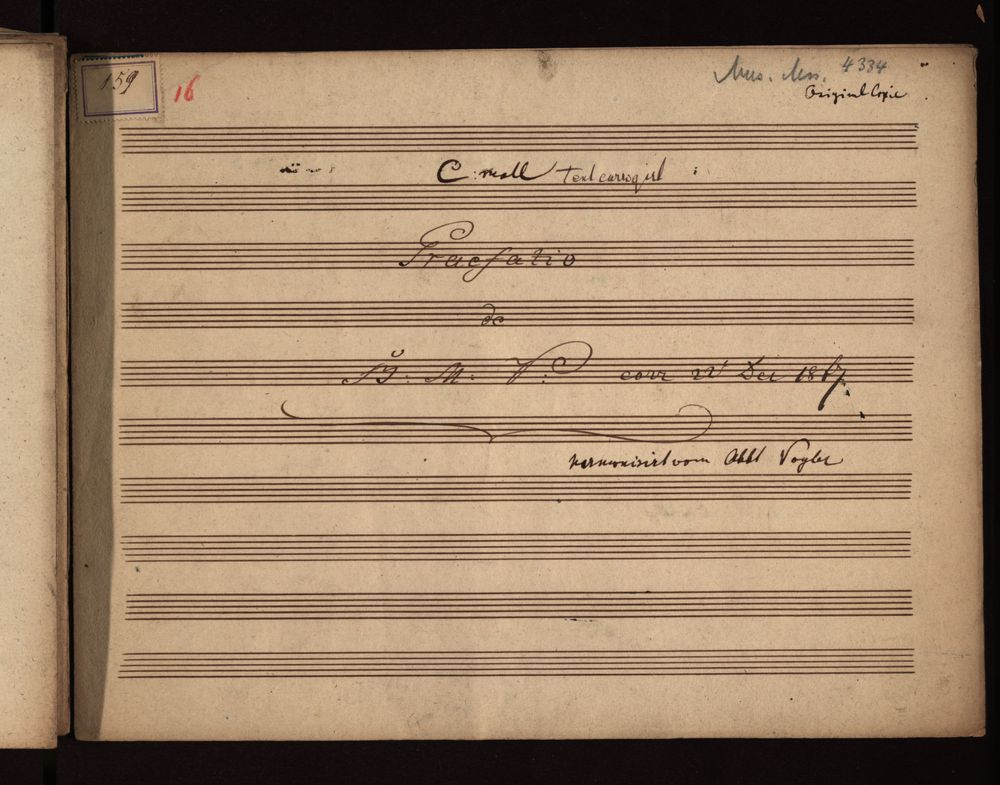 159
16
Mus. Mss. 4334
Original Copie
C: moll Text corrogirt
Praefatio
de
B: M: V: corr 22t Dec 1867.
harmonisirt vom Abbt Vogler